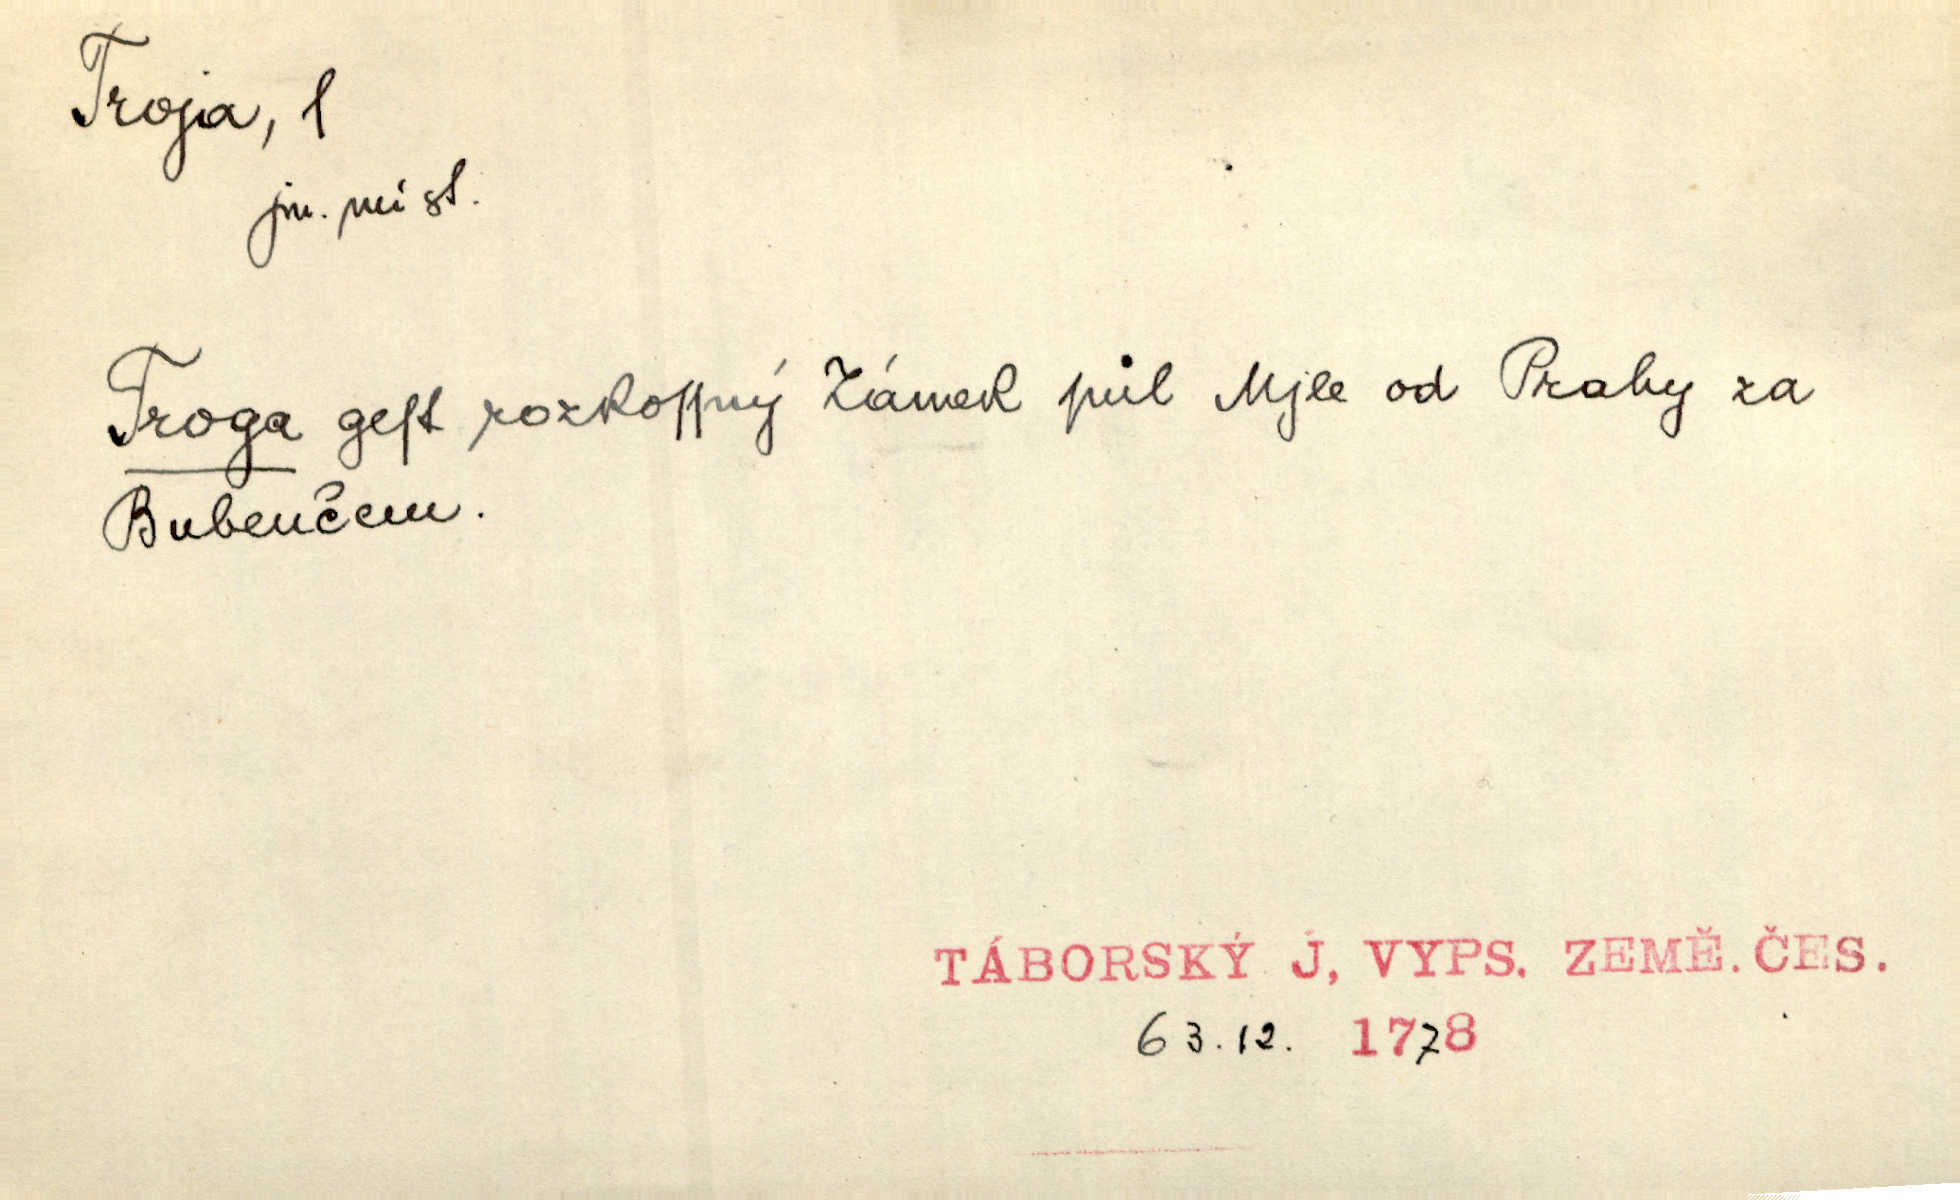 Troja, f
jm. míst.
Troga geſt rozkoſſný Zámek půl Mjle od Prahy za
Bubenčem.
TÁBORSKÝ J, VYPS. ZEMĚ. ČES.
63.12. 1778